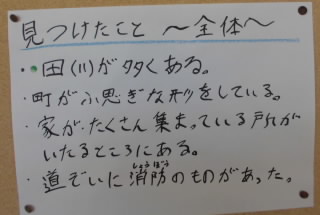 見つけたこと ～全体～
・田(川)が多くある。
・町がふ思ぎな形をしている。
・家が、たくさん集まっている所が
いたるところにある。
・道ぞいに消防のものがあった。
しょうぼう